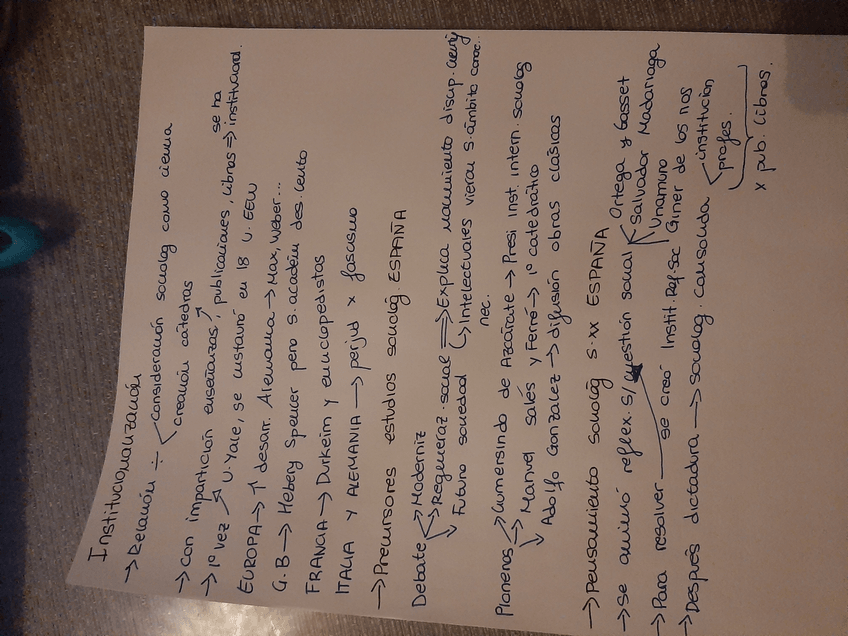 Institucionalización
→ Relación ÷ consideración sociolog como ciencia
creación cátedras
→ con impartición enseñanzas, publicaciones, libros ⇒ se ha institucional.
→ 1º vez → U. Yale, se instauró en 18 U. EEUU
EUROPA → ↑ desarr. Alemania → Max, Weber...
G.B → Hebery Spencer pero s. académ des. lento
FRANCIA → Durkeim y enciclopedistas
ITALIA Y ALEMANIA → perjud x fascismo
→ Precursores estudios sociolog. ESPAÑA
Debate → Moderniz
→ Regeneraz. social ⇒ Explica nacimiento discip.
→ Futuro sociedad ↳ Intelectuales vieran s. ámbito conoc.
nec.
Pioneros → Gumersindo de Azcárate → Presi Inst. intern. sociolog
→ Manuel sales y Ferré → 1º catedrático
→ Adolfo González → difusión obras clásicas
→ Pensamiento sociolog s. XX ESPAÑA
→ Se animó reflex. s/ cuestión social Ortega y Gasset
Salvador Madariaga
Unamuno
→ Para resolver se creó Instit. Ref. Soc Giner de los rios
→ Después dictadura → Sociolog. consolida institucion
profes.
x pub. libros.